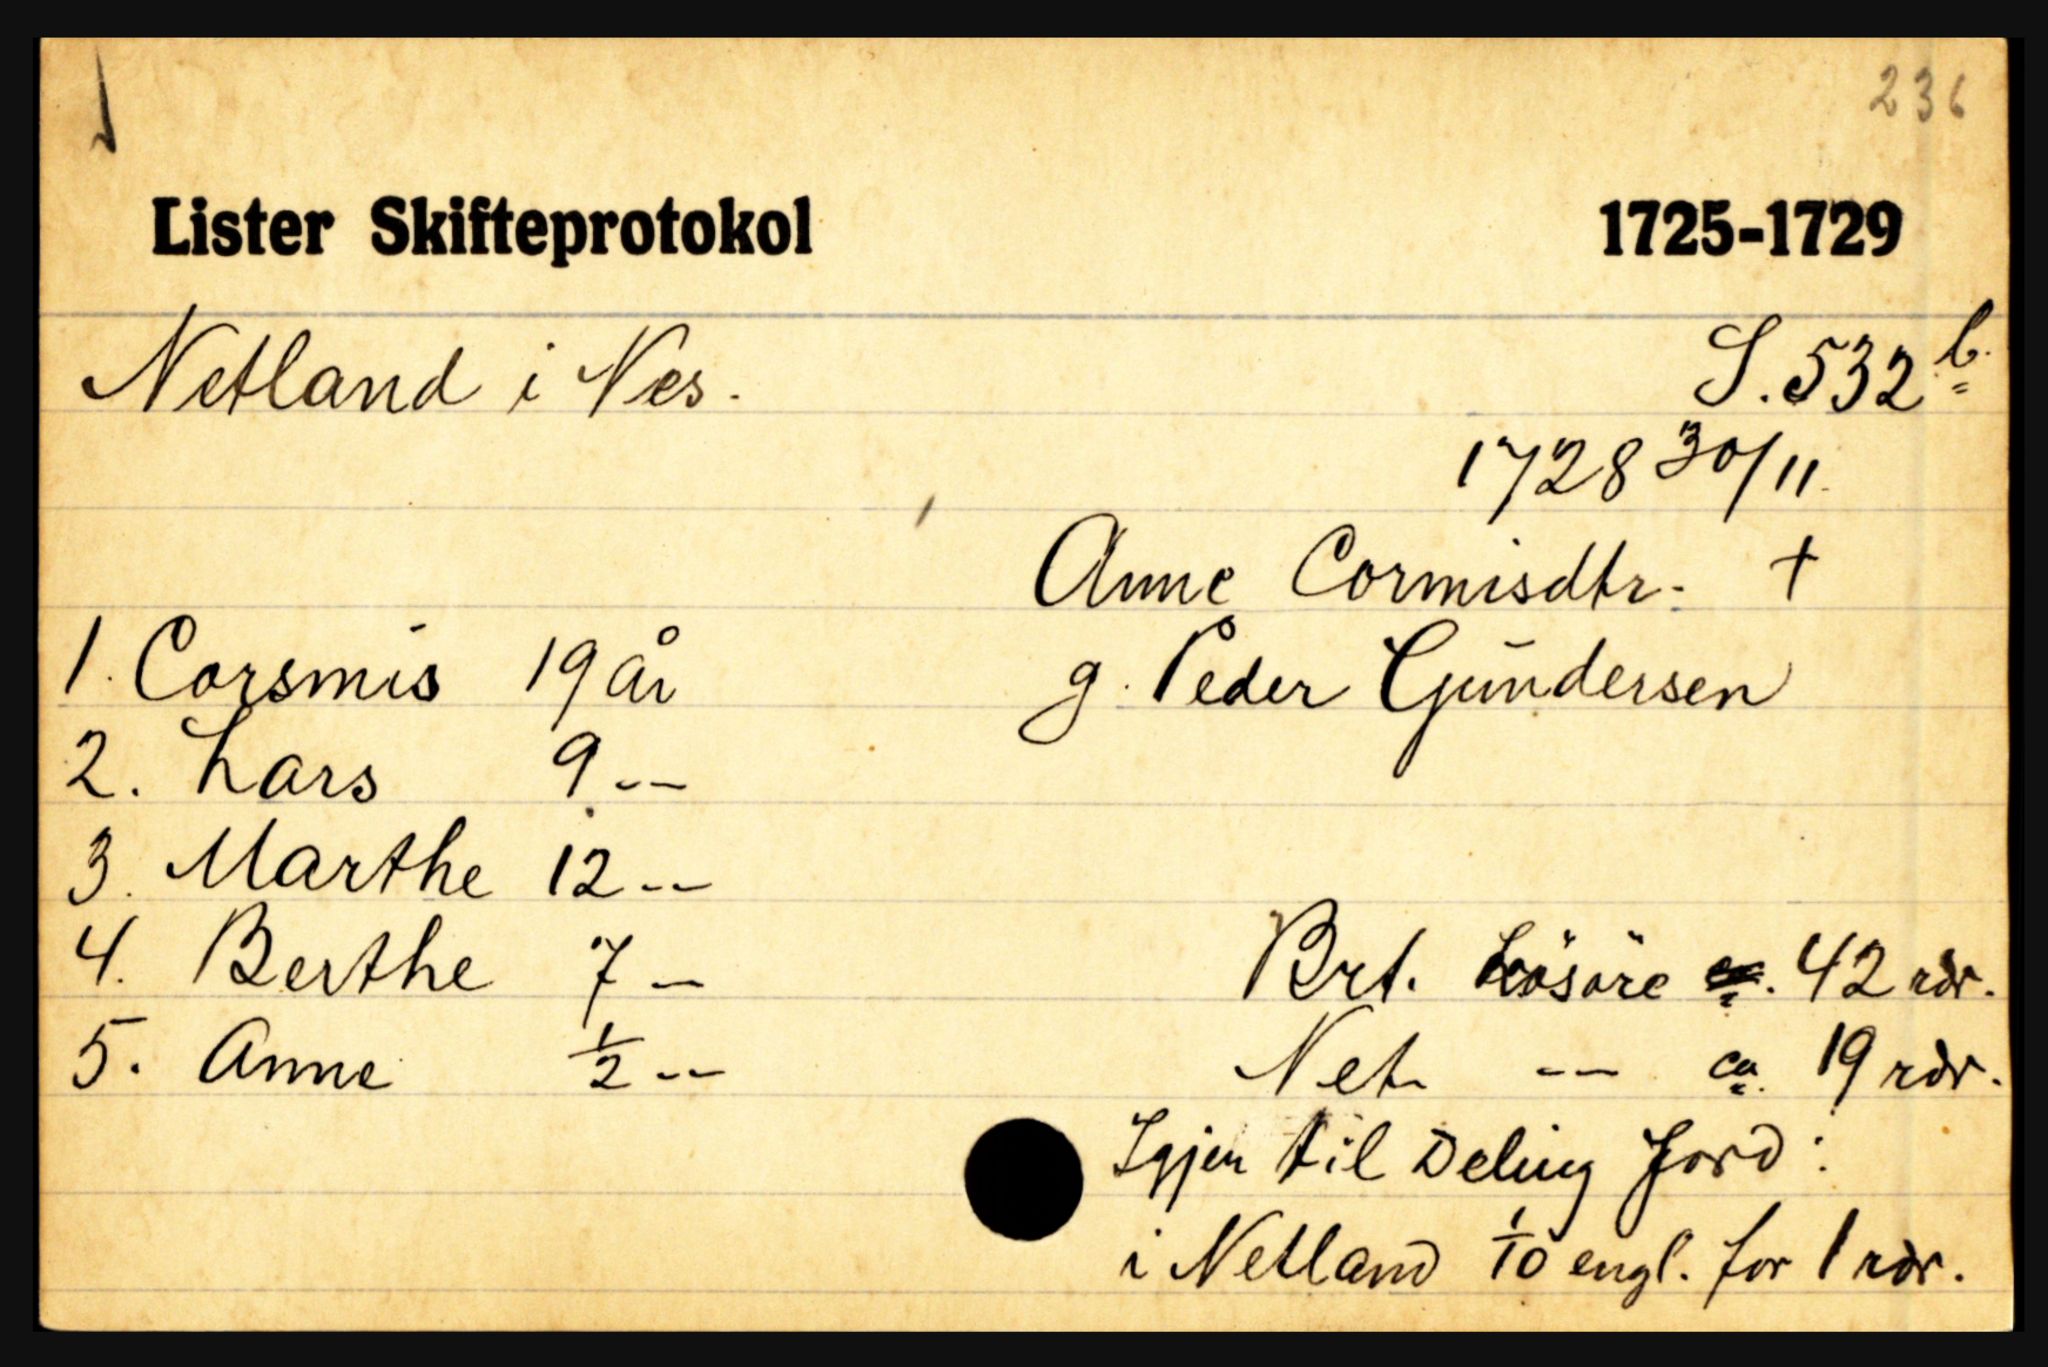 236
Lister Skifteprotokol 1725-1729
Netland i Nes. S. 532 b.
1728 30/11.
Anne Cormisdtr. +
1. Corsmis 19 år g. Peder Gundersen
2. Lars 9 --
3. Marthe 12 --
4. Berthe 7 - Brt. Lösöre ca. 42 rdr.
5. Anne 1/2 -- Net. -- ca. 19 rdr.
Igjen til Deling Jord:
i Netland 1/10 engl. for 1 rdr.